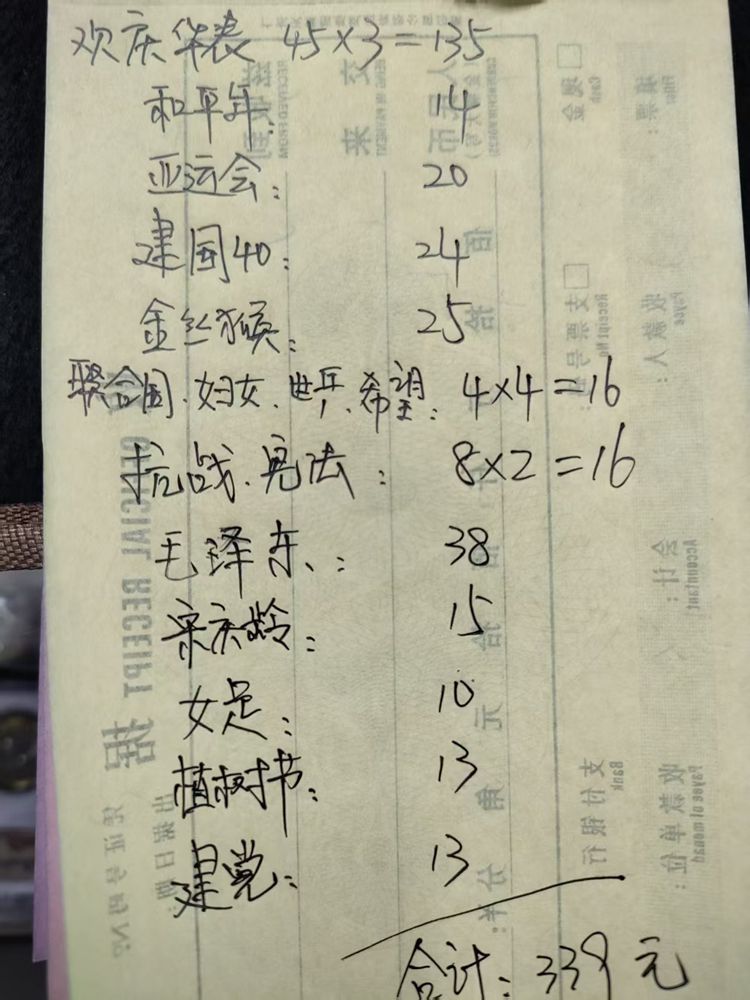 欢庆华表 45×3=135
和平年: 14
亚运会: 20
建国40: 24
金丝猴: 25
联合国、妇女、世乒、希望: 4×4=16
抗战、宪法: 8×2=16
毛泽东: 38
宋庆龄: 15
女足: 10
植树节: 13
建党: 13
合计: 339元